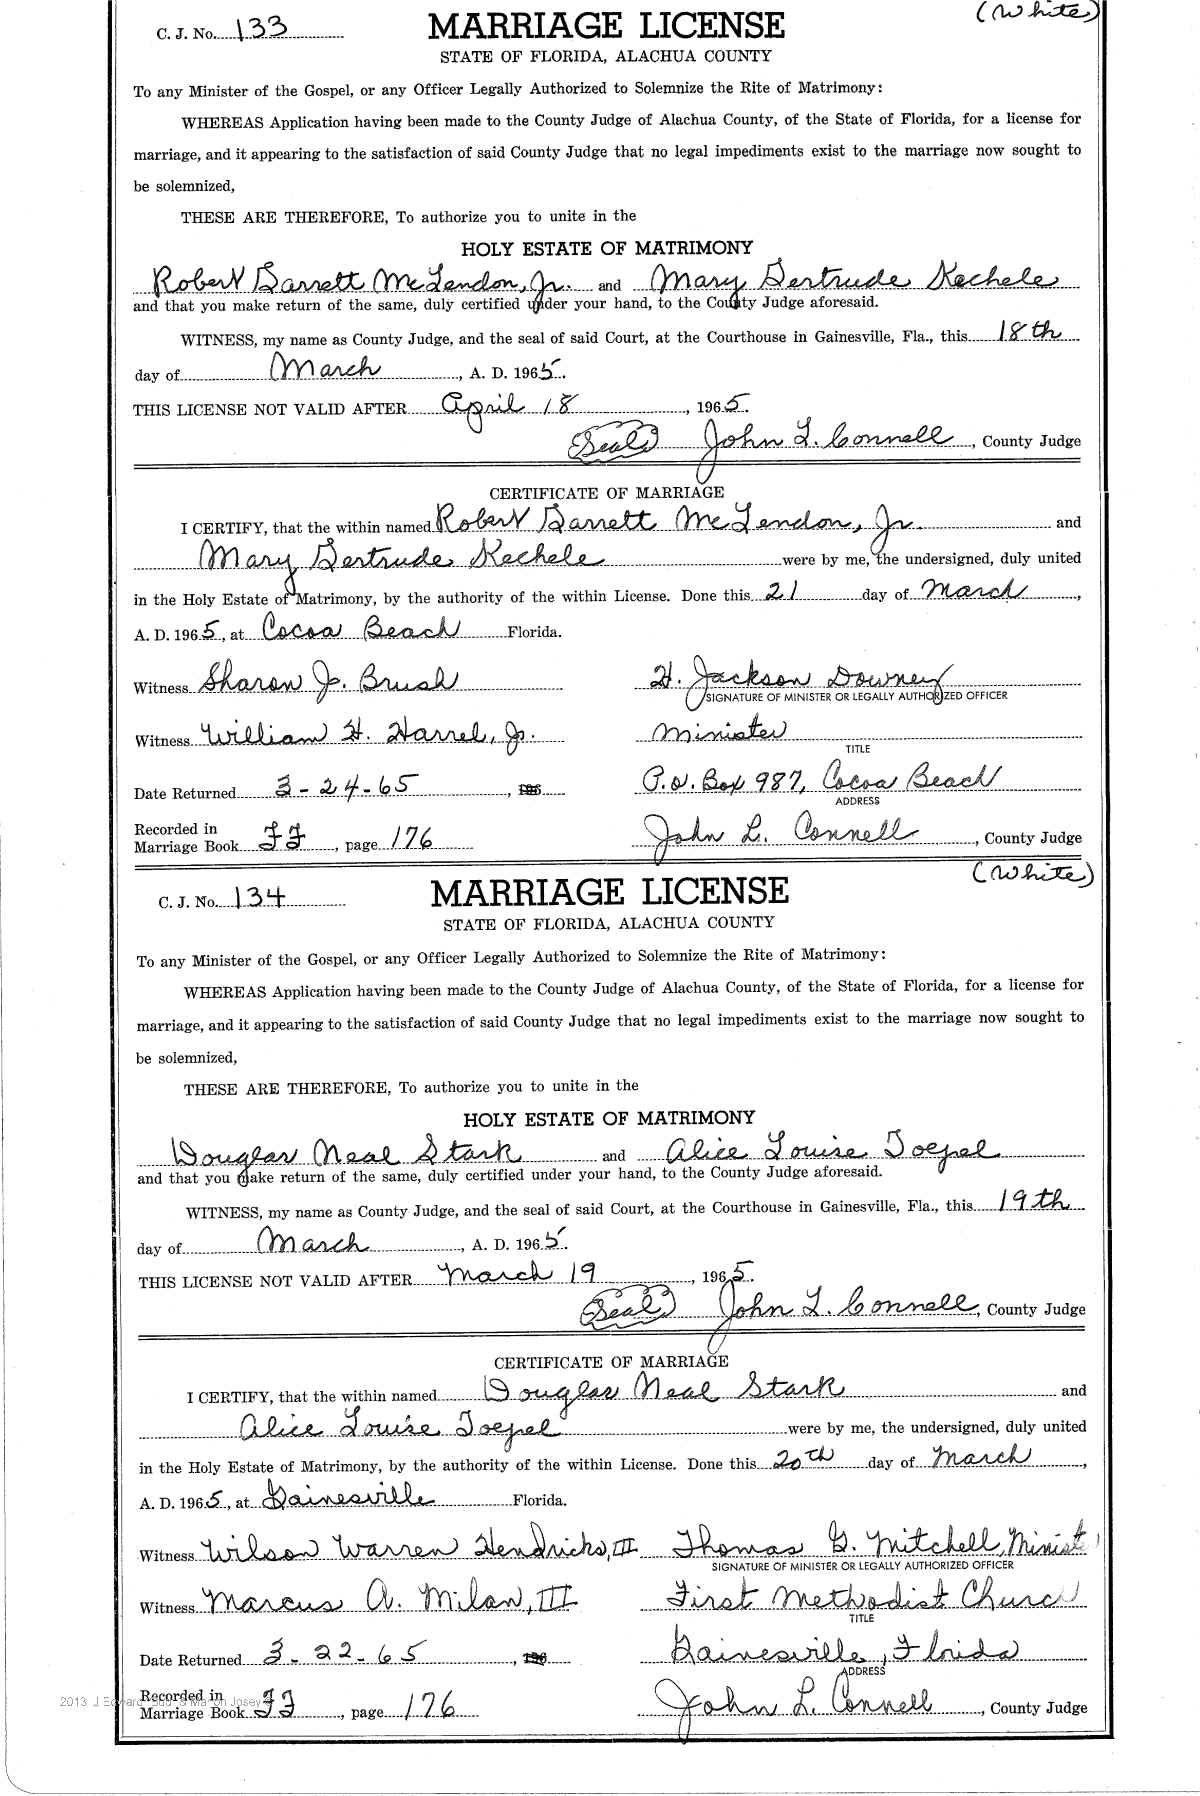 (White)
C. J. No. 133 MARRIAGE LICENSE
STATE OF FLORIDA, ALACHUA COUNTY
To any Minister of the Gospel, or any Officer Legally Authorized to Solemnize the Rite of Matrimony:
WHEREAS Application having been made to the County Judge of Alachua County, of the State of Florida, for a license for
marriage, and it appearing to the satisfaction of said County Judge that no legal impediments exist to the marriage now sought to
be solemnized,
THESE ARE THEREFORE, To authorize you to unite in the
HOLY ESTATE OF MATRIMONY
Robert Barrett McLendon, Jr. and Mary Gertrude Kechele
and that you make return of the same, duly certified under your hand, to the County Judge aforesaid.
WITNESS, my name as County Judge, and the seal of said Court, at the Courthouse in Gainesville, Fla., this 18th
day of March, A. D. 1965.
THIS LICENSE NOT VALID AFTER April 18, 1965.
(Seal) John L. Connell, County Judge
CERTIFICATE OF MARRIAGE
I CERTIFY, that the within named Robert Barrett McLendon, Jr. and
Mary Gertrude Kechele were by me, the undersigned, duly united
in the Holy Estate of Matrimony, by the authority of the within License. Done this 21 day of March,
A. D. 1965, at Cocoa Beach Florida.
Witness Sharon J. Brush H. Jackson Downey
SIGNATURE OF MINISTER OR LEGALLY AUTHORIZED OFFICER
Witness William H. Harrel, Jr. Minister
TITLE
Date Returned 3-24-65, 196 P.O. Box 987, Cocoa Beach
ADDRESS
Recorded in
Marriage Book FF, page 176 John L. Connell, County Judge
(White)
C. J. No. 134 MARRIAGE LICENSE
STATE OF FLORIDA, ALACHUA COUNTY
To any Minister of the Gospel, or any Officer Legally Authorized to Solemnize the Rite of Matrimony:
WHEREAS Application having been made to the County Judge of Alachua County, of the State of Florida, for a license for
marriage, and it appearing to the satisfaction of said County Judge that no legal impediments exist to the marriage now sought to
be solemnized,
THESE ARE THEREFORE, To authorize you to unite in the
HOLY ESTATE OF MATRIMONY
Douglas Neal Stark and Alice Louise Toepel
and that you make return of the same, duly certified under your hand, to the County Judge aforesaid.
WITNESS, my name as County Judge, and the seal of said Court, at the Courthouse in Gainesville, Fla., this 19th
day of March, A. D. 1965.
THIS LICENSE NOT VALID AFTER March 19, 1965.
(Seal) John L. Connell, County Judge
CERTIFICATE OF MARRIAGE
I CERTIFY, that the within named Douglas Neal Stark and
Alice Louise Toepel were by me, the undersigned, duly united
in the Holy Estate of Matrimony, by the authority of the within License. Done this 20th day of March,
A. D. 1965, at Gainesville Florida.
Witness Wilson Warren Hendricks, III Thomas G. Mitchell, Minist
SIGNATURE OF MINISTER OR LEGALLY AUTHORIZED OFFICER
Witness Marcus A. Milam, III First Methodist Church
TITLE
Date Returned 3-22-65, 196 Gainesville, Florida
ADDRESS
Recorded in
Marriage Book FF, page 176 John L. Connell, County Judge